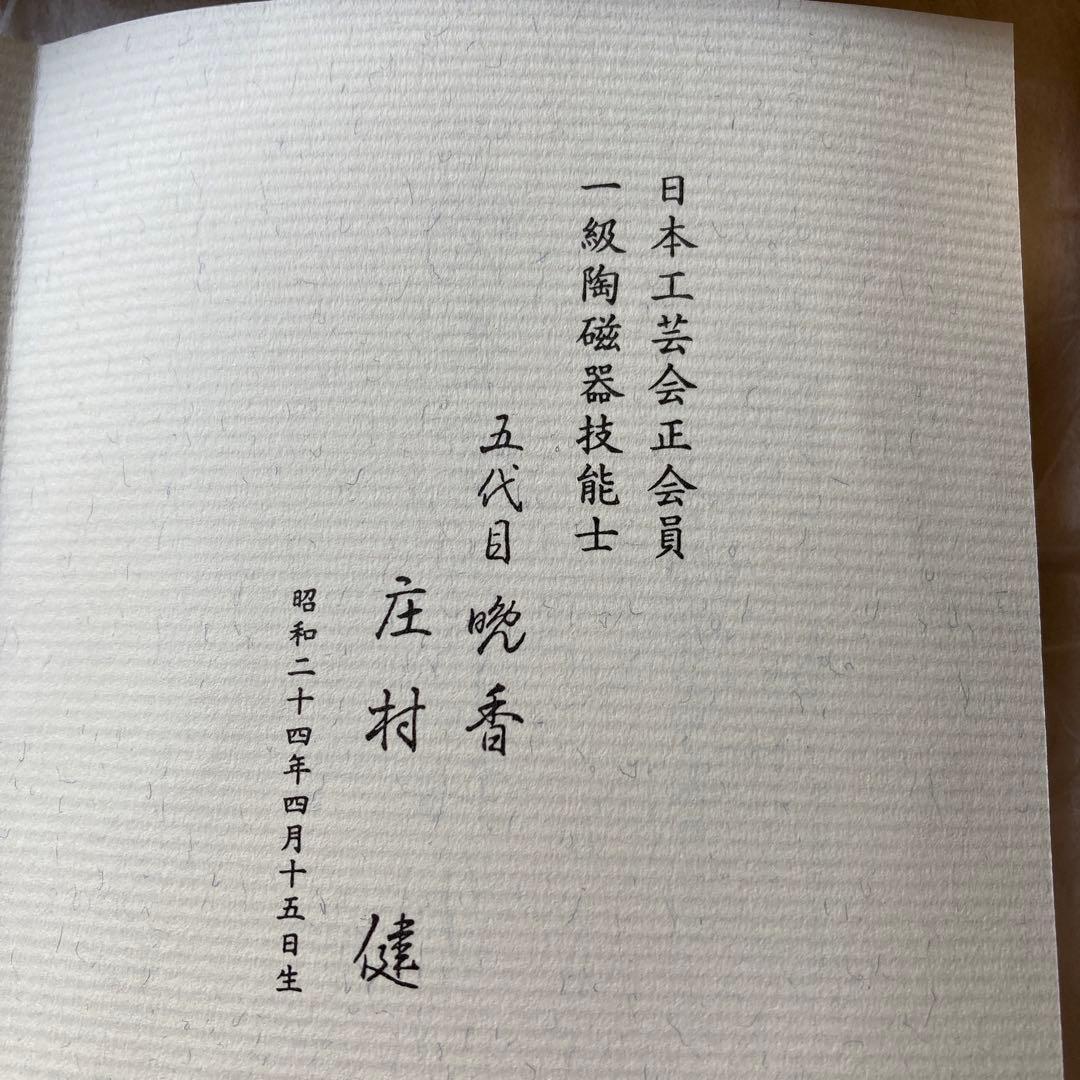 日本工芸会正会員
一級陶磁器技能士
五代目 晩香
庄村 健
昭和二十四年四月十五日生